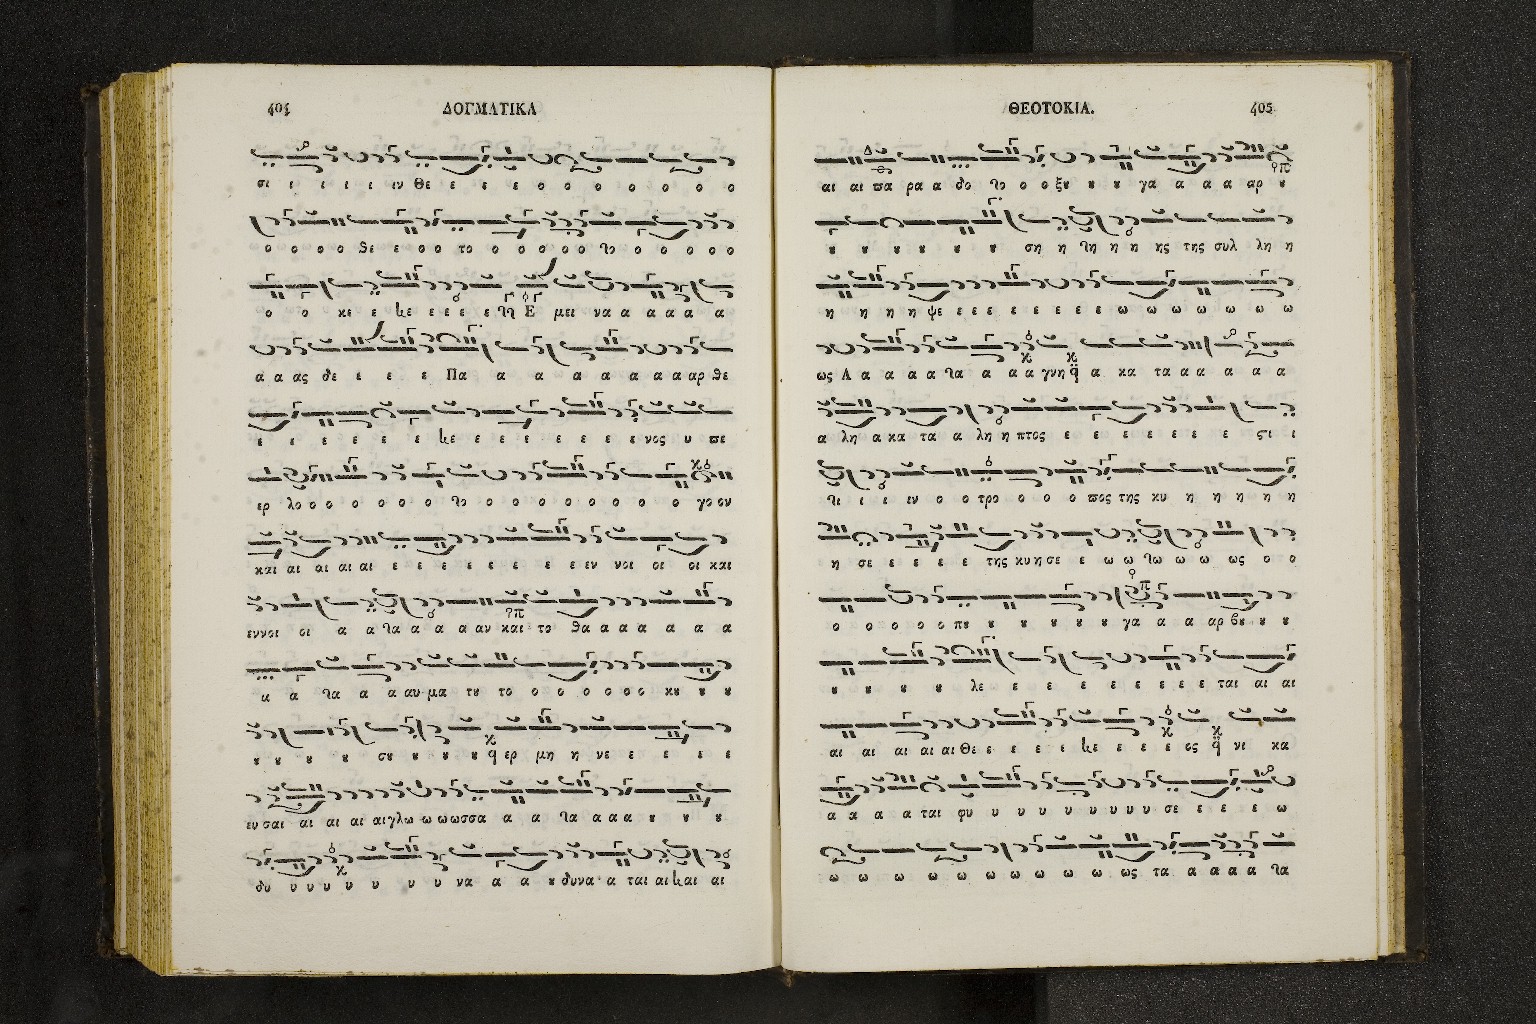 404 ΔΟΓΜΑΤΙΚΑ
σι ι ι ι ι ιν θε ε ε ε ο ο ο ο ο ο ο ο
ο ο ο ο θε ε ο ο το ο ο ο ο ο το ο ο ο ο ο
ο ο κε ε ε ε ε ε Ε μει να α α α α α
α α ας δε ε ε ε Πα α α α α α α α αρ θε
ε ε ε ε ε ε ε ε ε ε ε ε ε ε νος υ πε
ερ λο ο ο ο ο ο ο ο ο ο ο ο ο ο ο γο ον
και αι αι αι αι ε ε ε ε ε ε ε ε ειν νοι οι οι και
εννοι οι α α α α α α αν και το θα α α α α α α
α α α α α αυ μα τȣ το ο ο ο ο ο ο ο κȣ ȣ ȣ
ȣ ȣ ȣ ȣ σȣ ȣ ȣ ȣ ερ μη η νε ε ε ε ε
ευ σαι αι αι αι αι γλω ω ω ωσσα α α α α α α ȣ ȣ ȣ
δυ υ υ υ υ υ υ υ να α α ȣ δυνα α ται αι και αι
ΘΕΟΤΟΚΙΑ. 405
αι αι πα ρα α δο ο ο ο ξȣ ȣ ȣ γα α α α αρ ȣ
ȣ ȣ ȣ ȣ ȣ ȣ ση η η η η ης της συλ λη η
η η η η ψε ε ε ε ε ε ε ε ε ω ω ω ω ω ω ω
ως Α α α α α α α α γνη α κα τα α α α α α
α λη α κα τα α λη η πτος ε ε ε ε ε ε ε ϛι ι
ι ι ι ιν ο ο τρο ο ο ο ο πος της κυ η η η η η
η σε ε ε ε ε της κυ η σε ε ω ω ω ω ω ως ο ο
ο ο ο ο ο πȣ ȣ ȣ ȣ ȣ ȣ γα α α αρ βȣ ȣ ȣ
ȣ ȣ ȣ ȣ λε ε ε ε ε ε ε ε ε ται αι αι
αι αι αι αι αι θε ε ε ε ε ε ε ε ε ος νι κα
α α α α ται φυ υ υ υ υ υ υ υ υ σε ε ε ε ω
ω ω ω ω ω ω ω ω ω ως τα α α α α